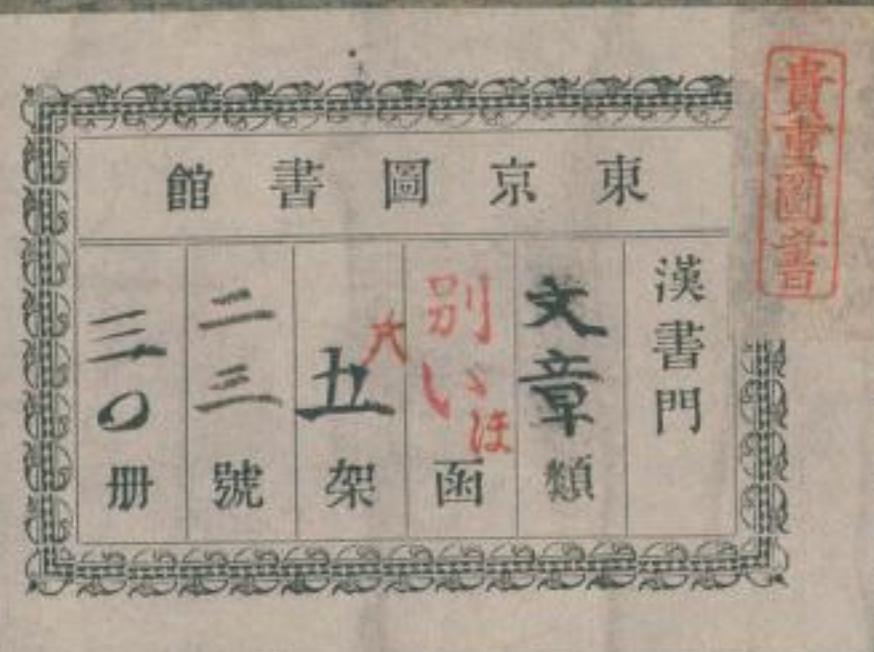 貴重圖書
東京圖書館
漢書門
文章類
別いほ函
五六架
二三號
三〇册